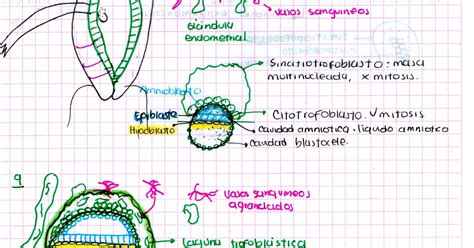 vasos sanguineos
Glándula
endometrial
Sincitiotrofoblasto: masa
multinucleada, x mitosis.
Amnioblasto
Epiblasto
Citotrofoblasto. √mitosis
Hipoblasto
cavidad amniotica. liquido amniotico
cavidad blastocele.
9
vasos sanguineos
agrandados
laguna trofoblástica